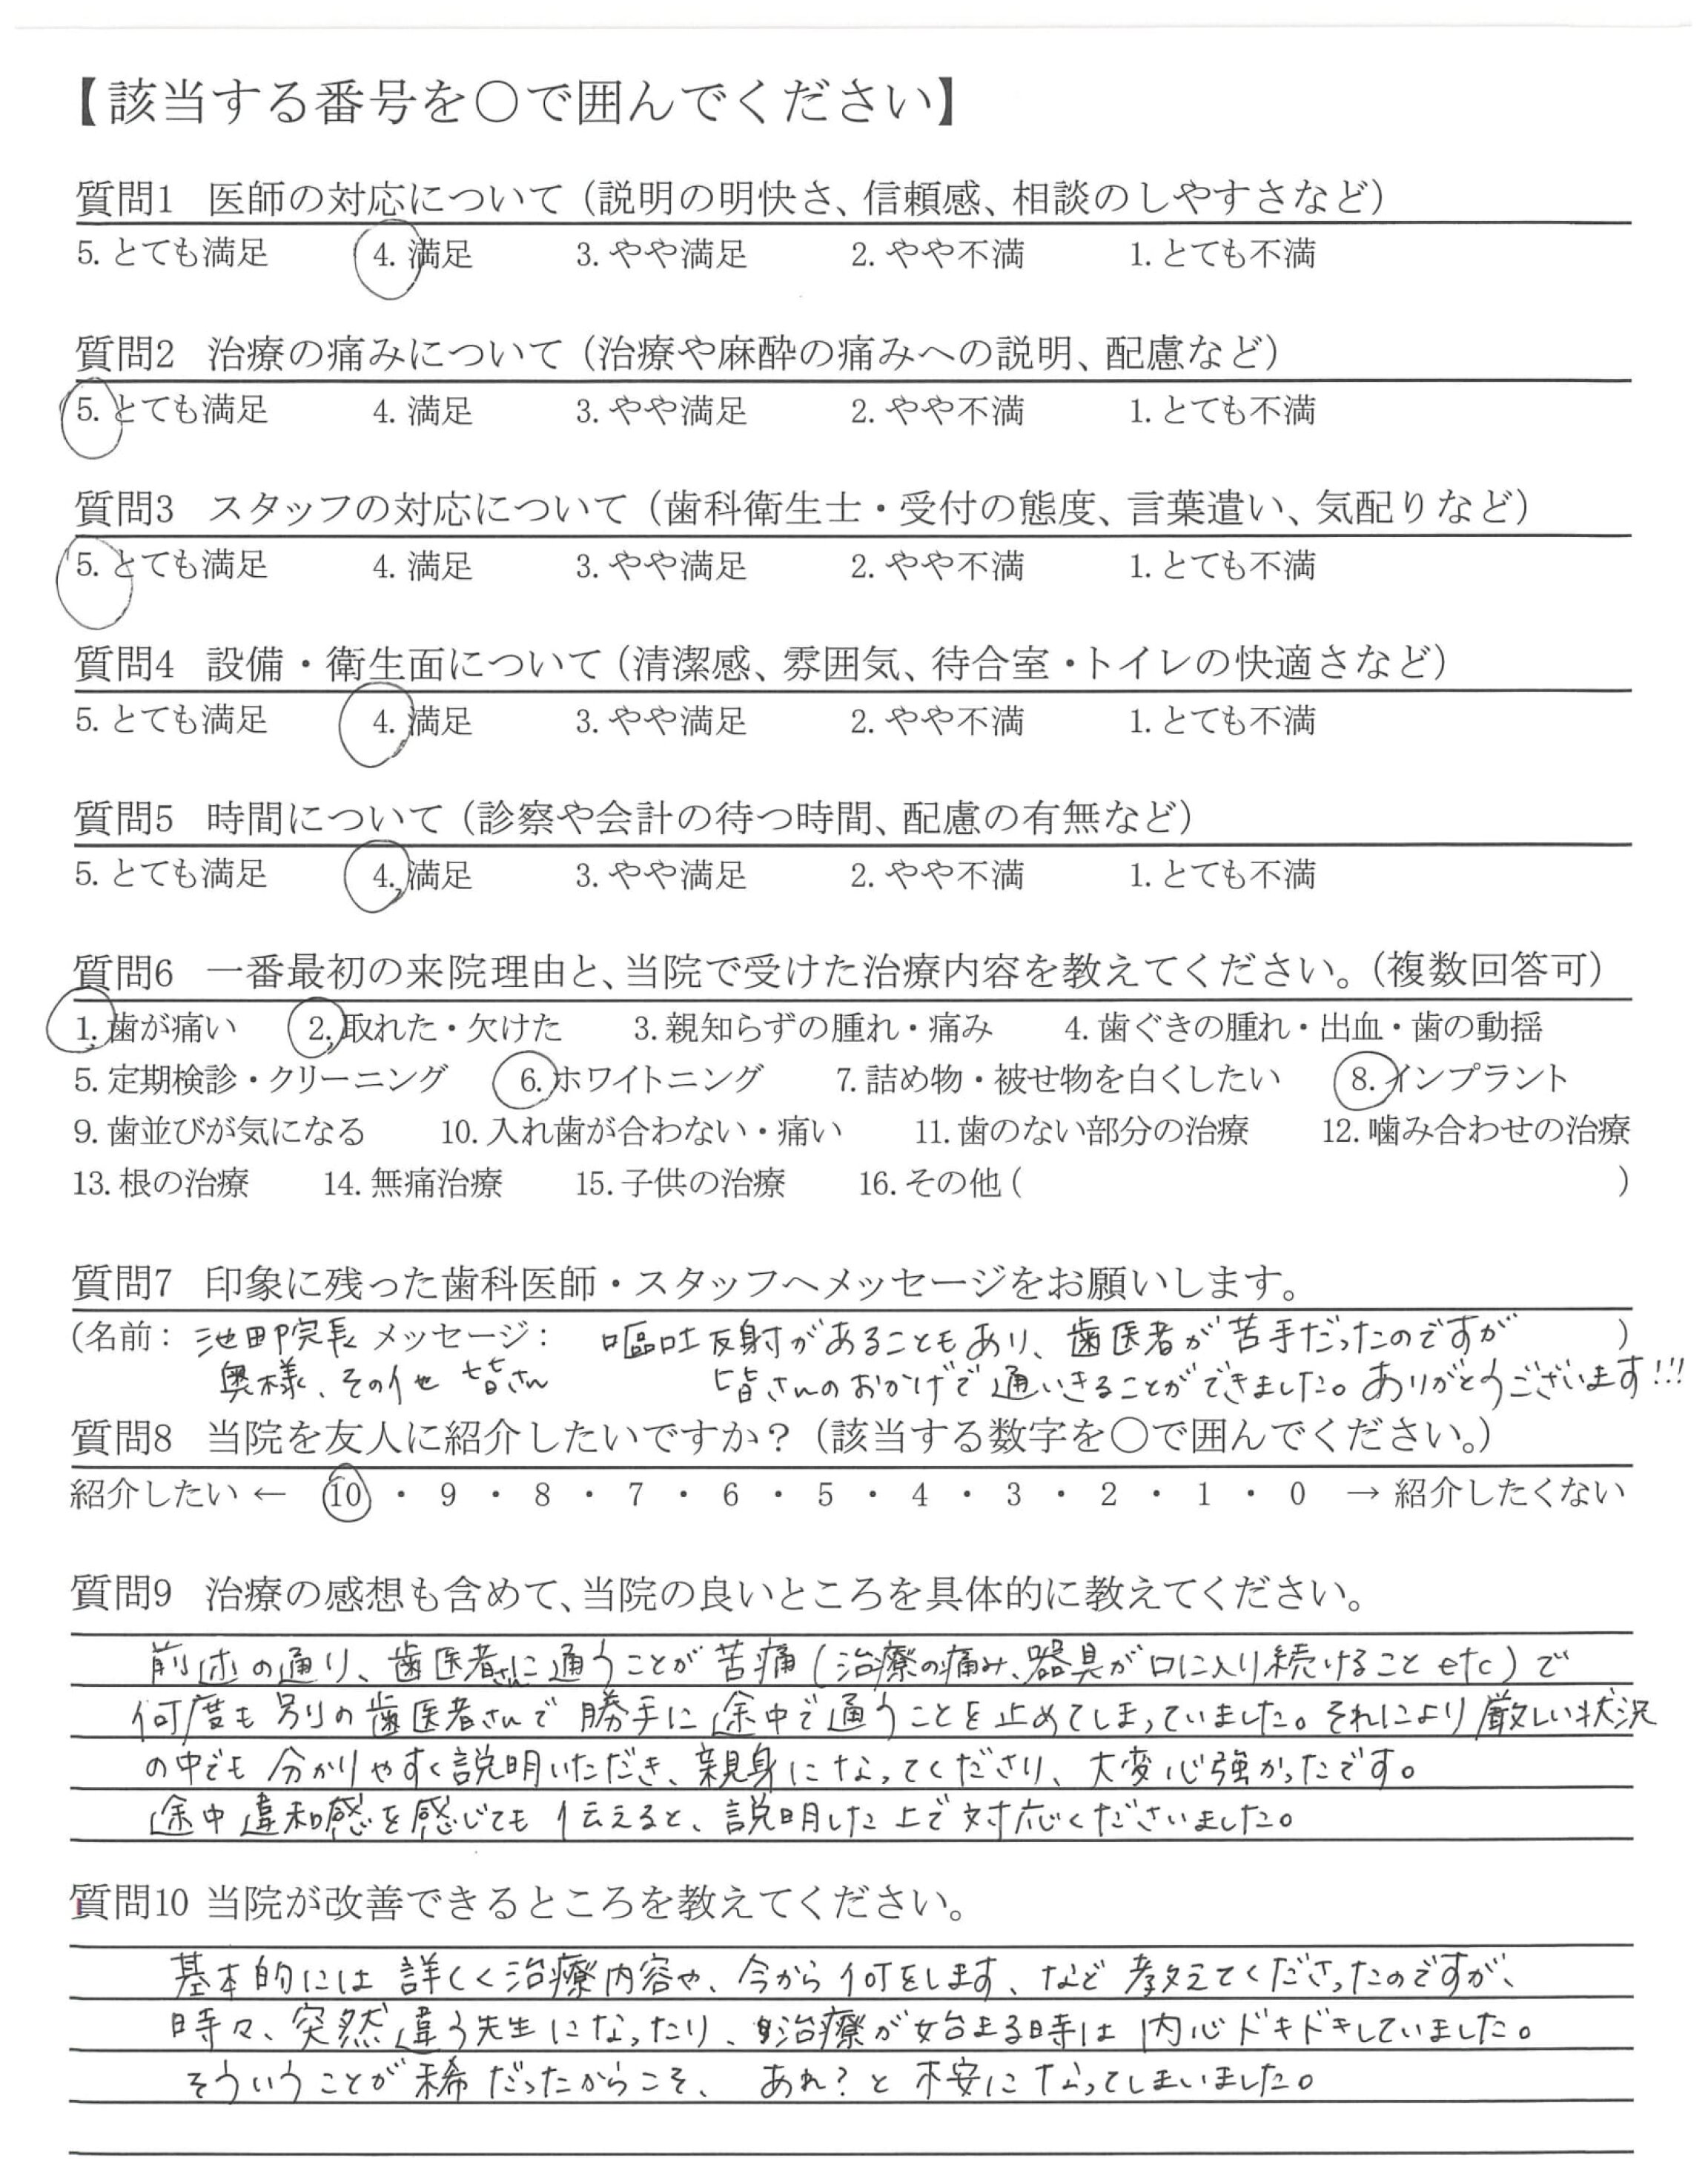 【該当する番号を○で囲んでください】
質問1 医師の対応について（説明の明快さ、信頼感、相談のしやすさなど）
5. とても満足 4. 満足 3. やや満足 2. やや不満 1. とても不満
質問2 治療の痛みについて（治療や麻酔の痛みへの説明、配慮など）
5. とても満足 4. 満足 3. やや満足 2. やや不満 1. とても不満
質問3 スタッフの対応について（歯科衛生士・受付の態度、言葉遣い、気配りなど）
5. とても満足 4. 満足 3. やや満足 2. やや不満 1. とても不満
質問4 設備・衛生面について（清潔感、雰囲気、待合室・トイレの快適さなど）
5. とても満足 4. 満足 3. やや満足 2. やや不満 1. とても不満
質問5 時間について（診察や会計の待つ時間、配慮の有無など）
5. とても満足 4. 満足 3. やや満足 2. やや不満 1. とても不満
質問6 一番最初の来院理由と、当院で受けた治療内容を教えてください。（複数回答可）
1. 歯が痛い 2. 取れた・欠けた 3. 親知らずの腫れ・痛み 4. 歯ぐきの腫れ・出血・歯の動揺
5. 定期検診・クリーニング 6. ホワイトニング 7. 詰め物・被せ物を白くしたい 8. インプラント
9. 歯並びが気になる 10. 入れ歯が合わない・痛い 11. 歯のない部分の治療 12. 噛み合わせの治療
13. 根の治療 14. 無痛治療 15. 子供の治療 16. その他（ ）
質問7 印象に残った歯科医師・スタッフへメッセージをお願いします。
（名前： 池田院長 メッセージ： 嘔吐反射があることもあり、歯医者が苦手だったのですが ）
奥様、その他 皆さん 皆さんのおかげで通いきることができました。ありがとうございます!!!
質問8 当院を友人に紹介したいですか？（該当する数字を○で囲んでください。）
紹介したい ← 10 ・ 9 ・ 8 ・ 7 ・ 6 ・ 5 ・ 4 ・ 3 ・ 2 ・ 1 ・ 0 → 紹介したくない
質問9 治療の感想も含めて、当院の良いところを具体的に教えてください。
前述の通り、歯医者さんに通うことが苦痛（治療の痛み、器具が口に入り続けること etc）で
何度も別の歯医者さんで勝手に途中で通うことを止めてしまっていました。それにより厳しい状況
の中でも分かりやすく説明いただき、親身になってくださり、大変心強かったです。
途中違和感を感じても伝えると、説明した上で対応くださいました。
質問10 当院が改善できるところを教えてください。
基本的には詳しく治療内容や、今から何をします、など教えてくださったのですが、
時々、突然違う先生になったり、治療が始まる時は内心ドキドキしていました。
そういうことが稀だったからこそ、あれ？と不安になってしまいました。